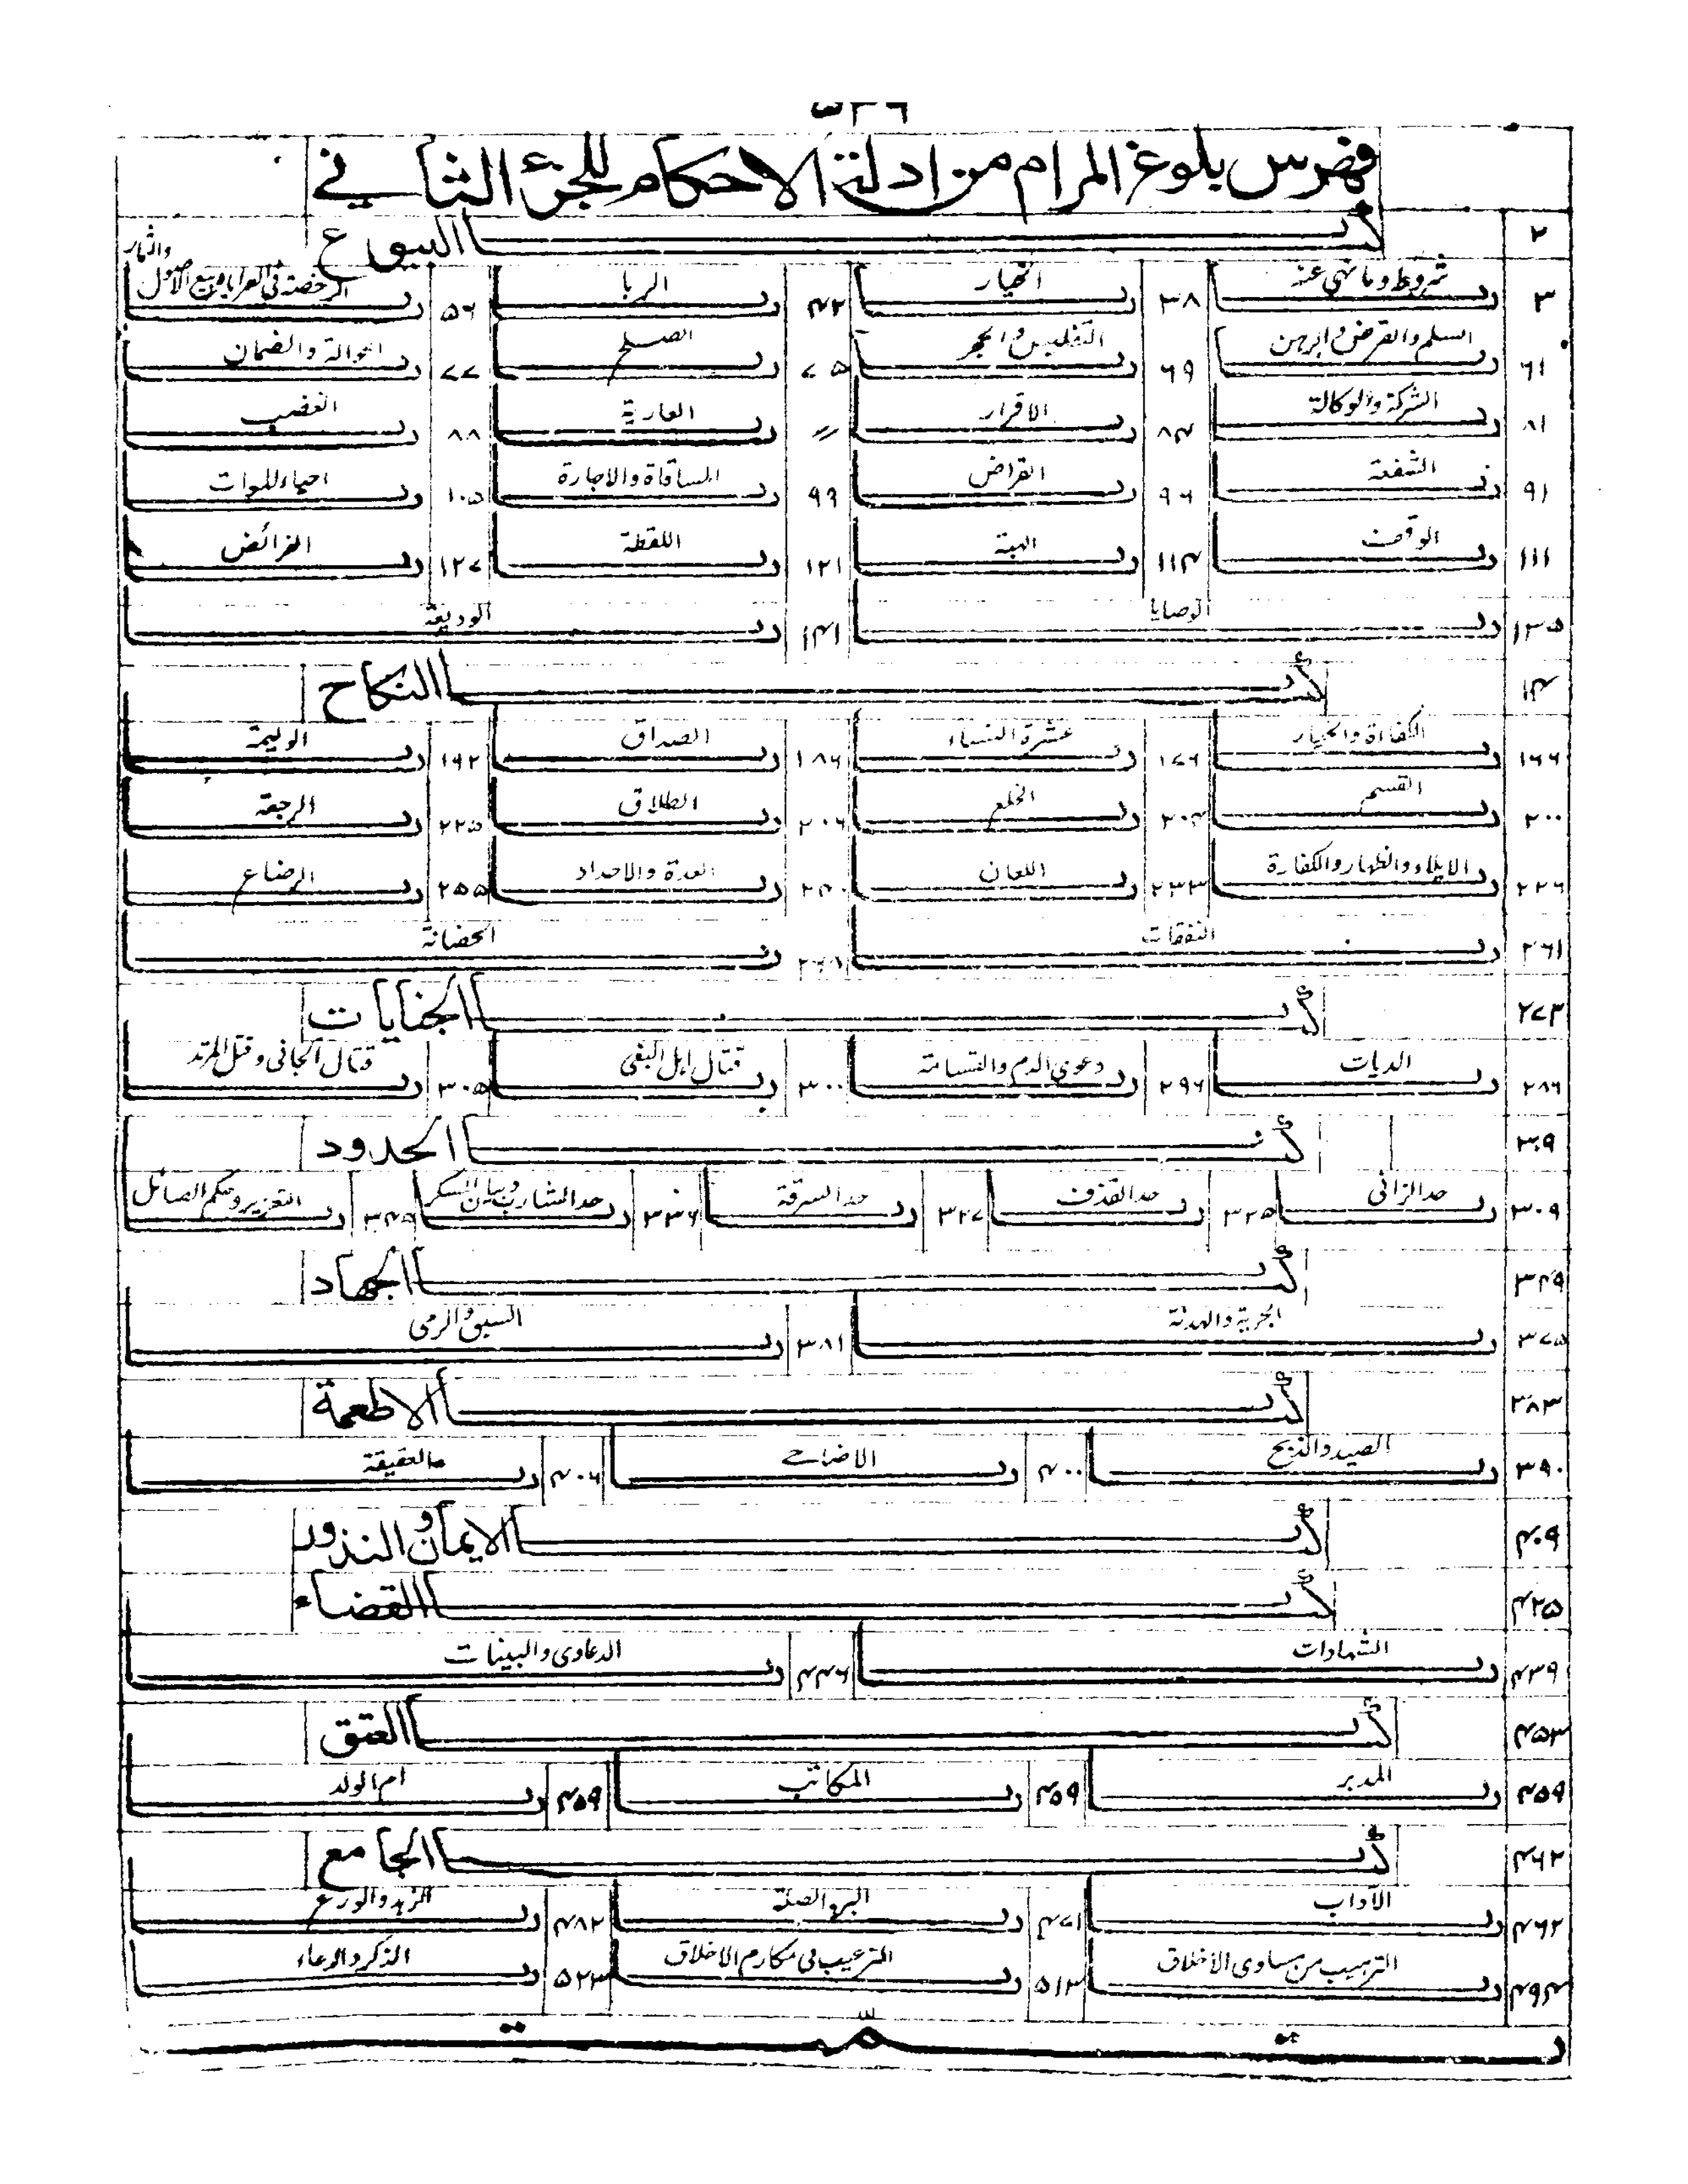 ۵۳۶
فهرس بلوغ المرام من ادلة الاحكام للجزء الثاني
۲ كتاب البيوع
۳ باب شروطه وما نهي عنه ۳۸ باب الخيار ۴۲ باب الربا ۵۶ باب الرخصة في العرايا وبيع الاصول والثمار
۶۱ باب السلم والقرض والرهن ۶۹ باب التفليس والحجر ۷۵ باب الصلح ۷۷ باب الحوالة والضمان
۸۱ باب الشركة والوكالة ۸۴ باب الاقرار // باب العارية ۸۸ باب الغصب
۹۱ باب الشفعة ۹۶ باب القراض ۹۹ باب المساقاة والاجارة ۱۰۵ باب احياء الموات
۱۱۱ باب الوقف ۱۱۴ باب الهبة ۱۲۱ باب اللقطة ۱۲۷ باب الفرائض
۱۳۵ باب الوصايا ۱۴۱ باب الوديعة
۱۴ كتاب النكاح
۱۶۶ باب الكفاءة والخيار ۱۷۶ باب عشرة النساء ۱۸۶ باب الصداق ۱۹۲ باب الوليمة
۲۰۰ باب القسم ۲۰۴ باب الخلع ۲۰۶ باب الطلاق ۲۲۵ باب الرجعة
۲۲۶ باب الايلاء والظهار والكفارة ۲۳۳ باب اللعان ۲۴۰ باب العدة والاحداد ۲۵۵ باب الرضاع
۲۶۱ باب النفقات ۲۶۸ باب الحضانة
۲۷۳ كتاب الجنايات
۲۸۶ باب الديات ۲۹۶ باب دعوى الدم والقسامة ۳۰۰ باب قتال اهل البغي ۳۰۵ باب قتال الجاني وقتل المرتد
۳۰۹ كتاب الحدود
۳۰۹ باب حد الزاني ۳۲۵ باب حد القذف ۳۲۷ باب حد السرقة ۳۳۶ باب حد الشارب وبيان المسكر ۳۴۵ باب التعزير وحكم الصائل
۳۴۹ كتاب الجهاد
۳۷۵ باب الجزية والهدنة ۳۸۱ باب السبق والرمى
۳۸۳ كتاب الاطعمة
۳۹۰ باب الصيد والذبح ۴۰۰ باب الاضاحي ۴۰۶ باب العقيقة
۴۰۹ كتاب الايمان والنذور
۴۲۵ كتاب القضاء
۴۳۹ باب الشهادات ۴۴۶ باب الدعاوى والبينات
۴۵۳ كتاب العتق
۴۵۹ باب المدبر ۴۵۹ باب المكاتب ۴۵۹ باب ام الولد
۴۶۲ كتاب الجامع
۴۶۲ باب الآداب ۴۷۱ باب البر والصلة ۴۸۲ باب الزهد والورع
۴۹۴ باب الترهيب من مساوى الاخلاق ۵۱۳ باب الترغيب في مكارم الاخلاق ۵۲۳ باب الذكر والدعاء
تمت